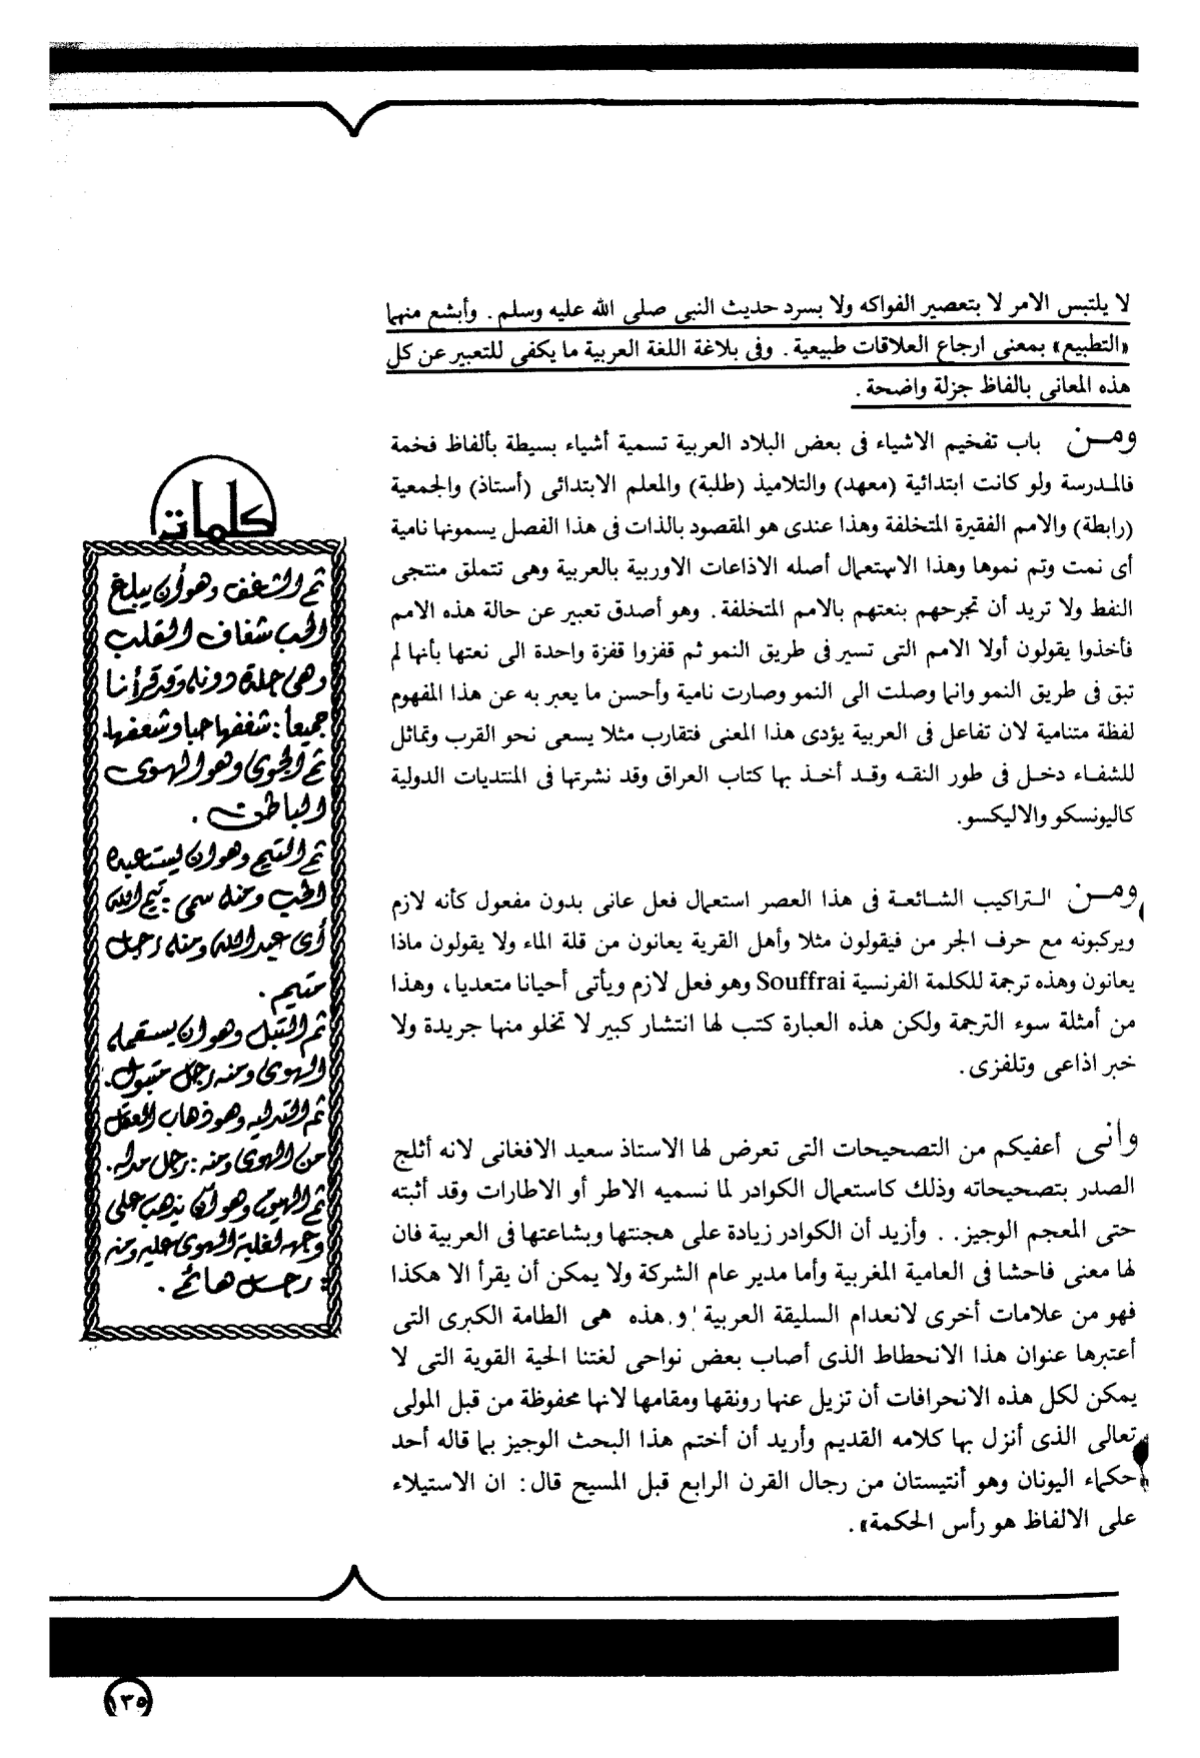 لا يلتبس الامر لا بتعصير الفواكه ولا بسرد حديث النبى صلى الله عليه وسلم. وأبشع منهما
«التطبيع» بمعنى ارجاع العلاقات طبيعية. وفى بلاغة اللغة العربية ما يكفى للتعبير عن كل
هذه المعانى بالفاظ جزلة واضحة.
ومــن باب تفخيم الاشياء فى بعض البلاد العربية تسمية أشياء بسيطة بألفاظ فخمة
فالمدرسة ولو كانت ابتدائية (معهد) والتلاميذ (طلبة) والمعلم الابتدائى (أستاذ) والجمعية
(رابطة) والامم الفقيرة المتخلفة وهذا عندى هو المقصود بالذات فى هذا الفصل يسمونها نامية
أى نمت وتم نموها وهذا الاستعمال أصله الاذاعات الاوربية بالعربية وهى تتملق منتجى
النفط ولا تريد أن تجرحهم بنعتهم بالامم المتخلفة. وهو أصدق تعبير عن حالة هذه الامم
فأخذوا يقولون أولا الامم التى تسير فى طريق النمو ثم قفزوا قفزة واحدة الى نعتها بأنها لم
تبق فى طريق النمو وانما وصلت الى النمو وصارت نامية وأحسن ما يعبر به عن هذا المفهوم
لفظة متنامية لان تفاعل فى العربية يؤدى هذا المعنى فتقارب مثلا يسعى نحو القرب وتماثل
للشفـاء دخـل فى طور النقـه وقـد أخـذ بها كتاب العراق وقد نشرتها فى المنتديات الدولية
كاليونسكو والاليكسو.
ومــن الـتراكيب الشـائعـة فى هذا العصر استعمال فعل عانى بدون مفعول كأنه لازم
ويركبونه مع حرف الجر من فيقولون مثلا وأهل القرية يعانون من قلة الماء ولا يقولون ماذا
يعانون وهذه ترجمة للكلمة الفرنسية Souffrai وهو فعل لازم ويأتى أحيانا متعديا، وهذا
من أمثلة سوء الترجمة ولكن هذه العبارة كتب لها انتشار كبير لا تخلو منها جريدة ولا
خبر اذاعى وتلفزى.
وانى أعفيكم من التصحيحات التى تعرض لها الاستاذ سعيد الافغانى لانه أثلج
الصدر بتصحيحاته وذلك كاستعمال الكوادر لما نسميه الاطر أو الاطارات وقد أثبته
حتى المعجم الوجيز. . وأزيد أن الكوادر زيادة على هجنتها وبشاعتها فى العربية فان
لها معنى فاحشا فى العامية المغربية وأما مدير عام الشركة ولا يمكن أن يقرأ الا هكذا
فهو من علامات أخرى لانعدام السليقة العربية و هذه هى الطامة الكبرى التى
أعتبرها عنوان هذا الانحطاط الذى أصاب بعض نواحى لغتنا الحية القوية التى لا
يمكن لكل هذه الانحرافات أن تزيل عنها رونقها ومقامها لانها محفوظة من قبل المولى
تعالى الذى أنزل بها كلامه القديم وأريد أن أختم هذا البحث الوجيز بما قاله أحد
حكماء اليونان وهو أنتيستان من رجال القرن الرابع قبل المسيح قال: ان الاستيلاء
على الالفاظ هو رأس الحكمة».
كلمات
ثم الشغف وهو أن يبلغ
الحب شغاف القلب
وهى جلدة دونه وقد قرأنا
جميعا: شغفها حبا وشعفها.
ثم الجوى وهو الهوى
الباطن.
ثم التيم وهو ان يستعبده
الحب ومنه سمى: تيم الله
أى عبد الله ومنه رجل
متيم.
ثم التبل وهو ان يسقمه
الهوى ومنه رجل متبول.
ثم التدليه وهو ذهاب العقل
من الهوى ومنه: رجل مدله.
ثم الهيوم وهو أن يذهب على
وجهه لغلبة الهوى عليه ومنه
: رجل هائم.
١٣٥